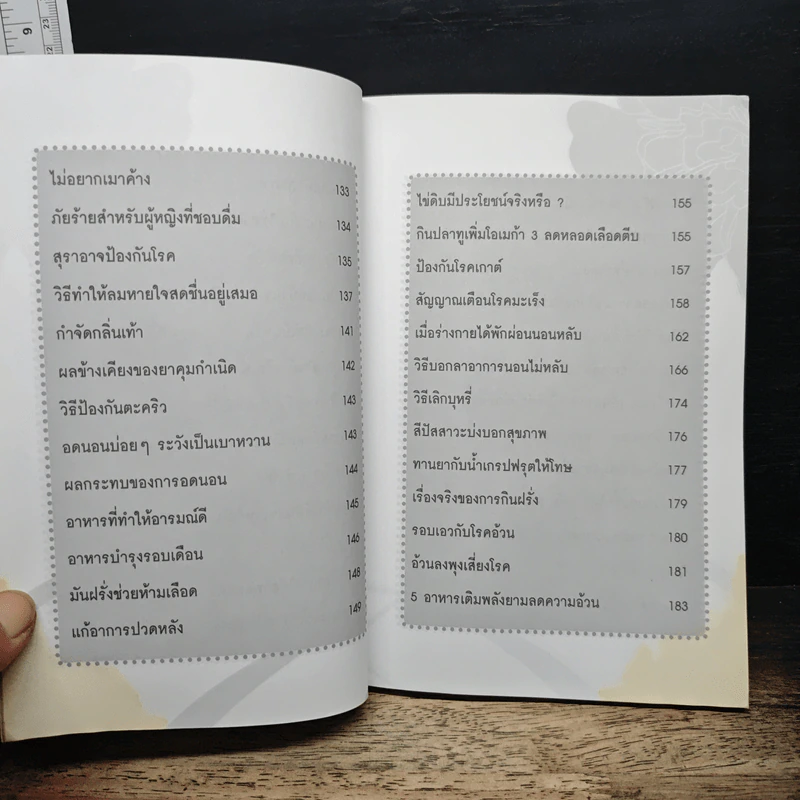 9
23
22
ไม่อยากเมาค้าง 133
ภัยร้ายสำหรับผู้หญิงที่ชอบดื่ม 134
สุราอาจป้องกันโรค 135
วิธีทำให้ลมหายใจสดชื่นอยู่เสมอ 137
กำจัดกลิ่นเท้า 141
ผลข้างเคียงของยาคุมกำเนิด 142
วิธีป้องกันตะคริว 143
อดนอนบ่อยๆ ระวังเป็นเบาหวาน 143
ผลกระทบของการอดนอน 144
อาหารที่ทำให้อารมณ์ดี 145
อาหารบำรุงรอบเดือน 146
มันฝรั่งช่วยห้ามเลือด 148
แก้อาการปวดหลัง 149
ไข่ดิบมีประโยชน์จริงหรือ ? 155
กินปลาทูเพิ่มโอเมก้า 3 ลดหลอดเลือดตีบ 155
ป้องกันโรคเกาต์ 157
สัญญาณเตือนโรคมะเร็ง 158
เมื่อร่างกายได้พักผ่อนนอนหลับ 162
วิธีบอกลาอาการนอนไม่หลับ 166
วิธีเลิกบุหรี่ 174
สีปัสสาวะบ่งบอกสุขภาพ 176
ทานยากับน้ำเกรปฟรุตให้โทษ 177
เรื่องจริงของการกินฝรั่ง 179
รอบเอวกับโรคอ้วน 180
อ้วนลงพุงเสี่ยงโรค 181
5 อาหารเติมพลังยามลดความอ้วน 183